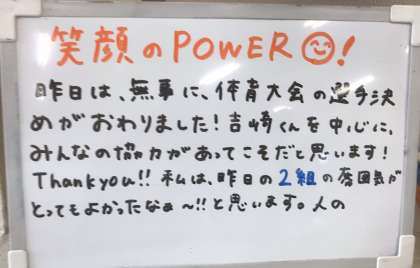 笑顔のPOWER☺!
昨日は、無事に、体育大会の選手決
めがおわりました!吉﨑くんを中心に、
みんなの協力があってこそだと思います!
Thank you!! 私は、昨日の2組の雰囲気が
とってもよかったなぁ~!!と思います。人の